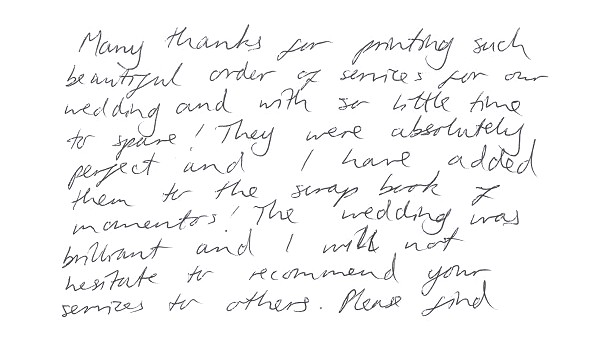 Many thanks for printing such
beautiful order of services for our
wedding and with so little time
to spare! They were absolutely
perfect and I have added
them to the scrap book of
momentos! The wedding was
brilliant and I will not
hesitate to recommend your
services to others. Please find